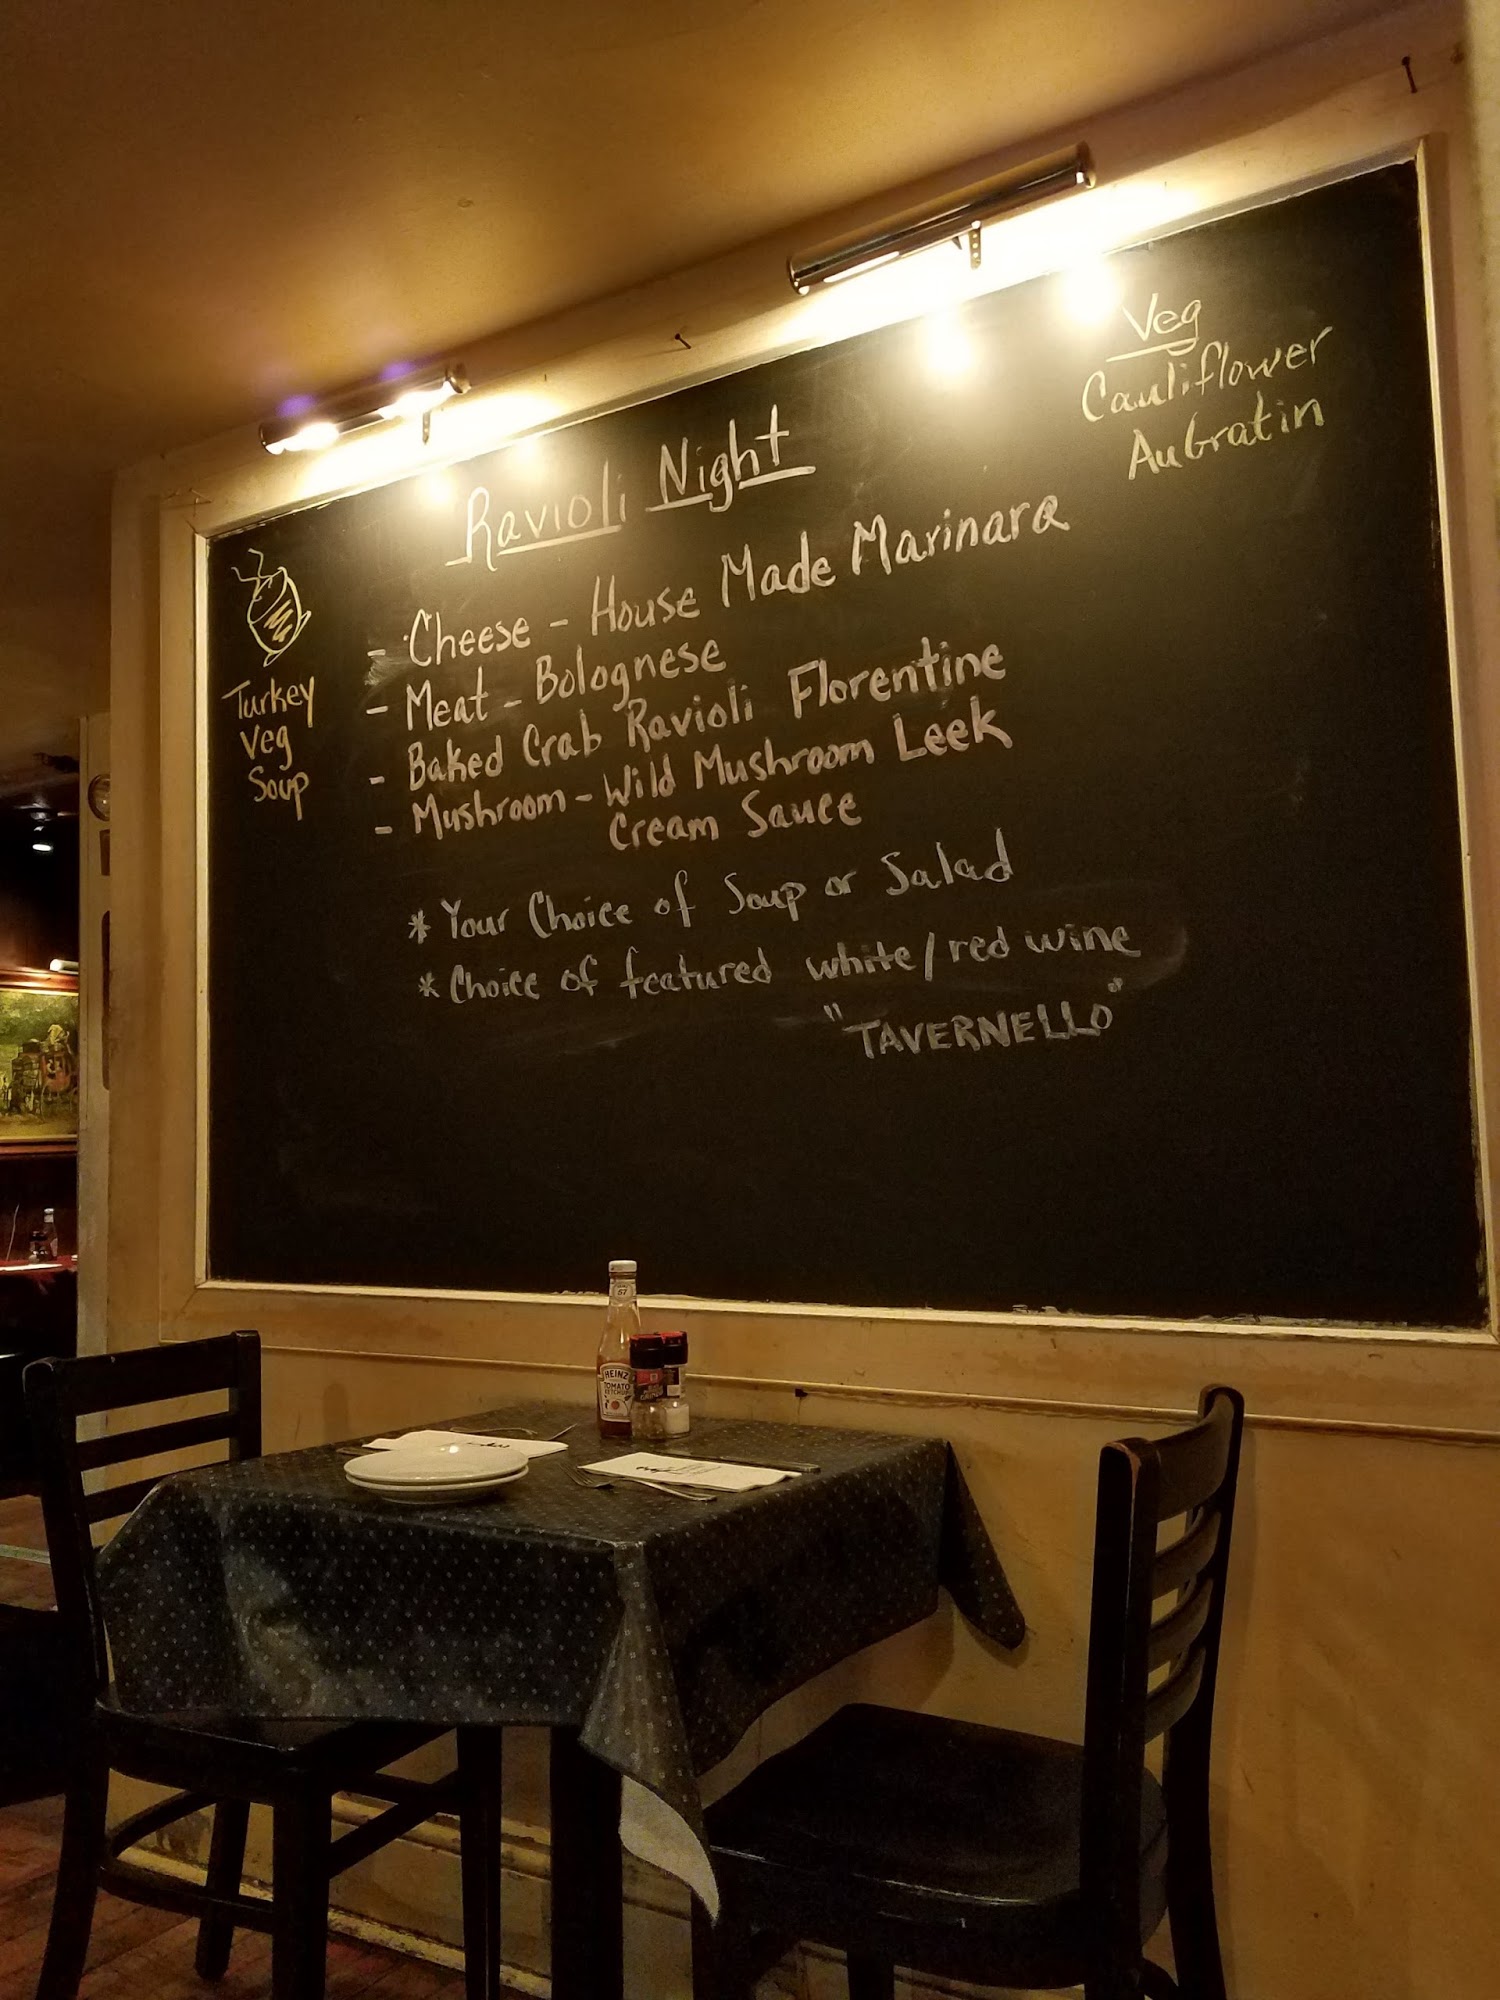 Ravioli Night
- Cheese - House Made Marinara
- Meat - Bolognese
- Baked Crab Ravioli Florentine
- Mushroom - Wild Mushroom Leek
Cream Sauce
* Your Choice of Soup or Salad
* Choice of featured white/red wine
"TAVERNELLO"
Turkey
Veg
Soup
Veg
Cauliflower
AuGratin
57
HEINZ
TOMATO
KETCHUP